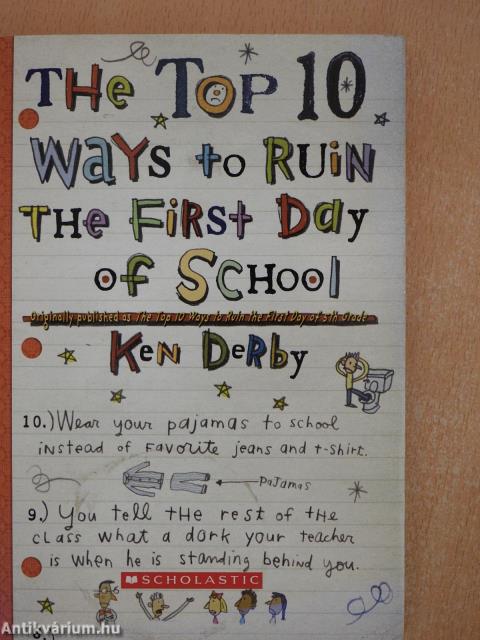 THe TOP 10
WAYS to RUiN
THe FiRSt DAy
of SCHOOl
Originally published as The Top 10 Ways to Ruin the First Day of 5th Grade
KeN DeRBy
10.) Wear your pajamas to school
iNstead of FAVORite jeans and t-shirt.
PaJamas
9.) You tell tHe rest of tHe
CLASS what a dork your teacher
is when he is standing behind you.
SCHOLASTIC
8.)
Antikvárium.hu